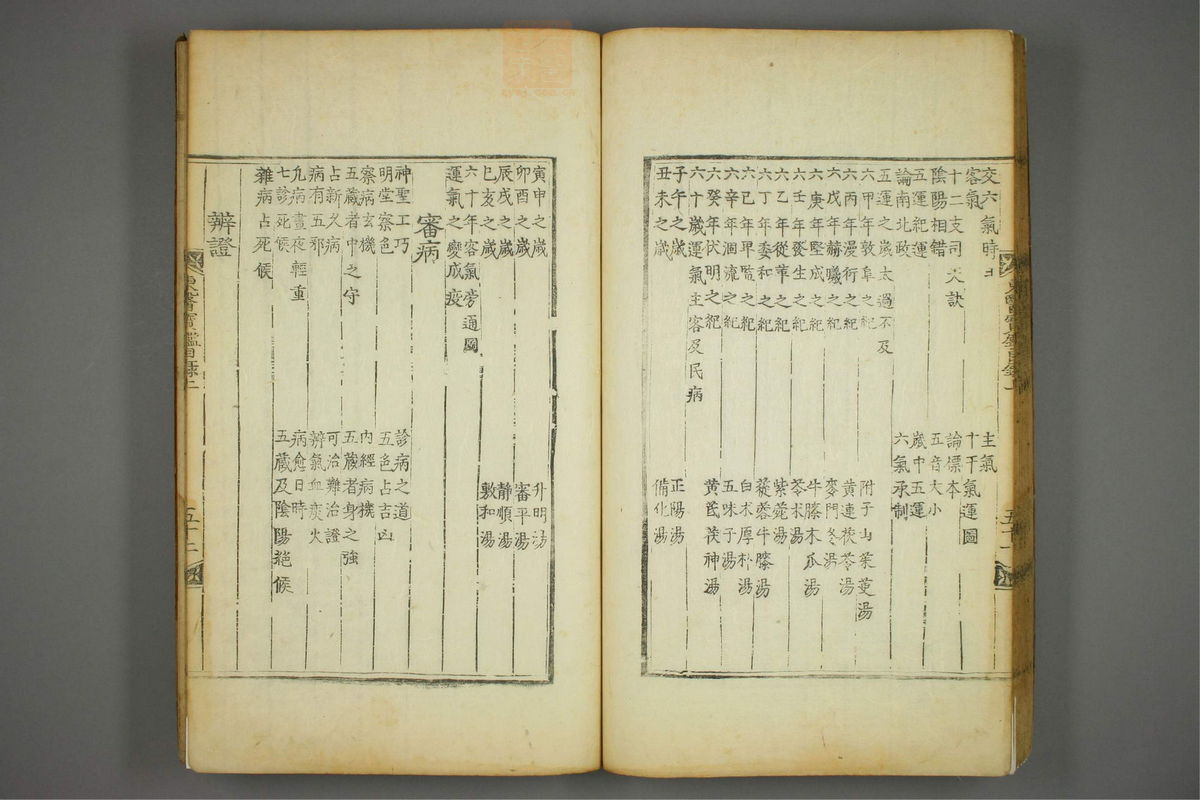 交六氣時日 主氣
客氣 十干氣運圖
十二支司天訣 論標本
陰陽相錯 五音大小
五運紀運 歲中五運
論南北政 六氣承制
五運之歲太過不及
六甲年敦阜之紀 附子山茱萸湯
六丙年漫衍之紀 黃連茯苓湯
六戊年赫曦之紀 麥門冬湯
六庚年堅成之紀 牛膝木瓜湯
六壬年發生之紀 苓朮湯
六乙年從革之紀 紫菀湯
六丁年委和之紀 蓯蓉牛膝湯
六己年卑監之紀 白朮厚朴湯
六辛年涸流之紀 五味子湯
六癸年伏明之紀 黃芪茯神湯
六十歲運氣主客及民病
子午之歲 正陽湯
丑未之歲 備化湯
寅申之歲 升明湯
卯酉之歲 審平湯
辰戌之歲 靜順湯
巳亥之歲 敷和湯
六十年客氣旁通圖
運氣之變成疫
審病
神聖工巧 診病之道
明堂察色 五色占吉凶
察病玄機 內經病機
五藏者中之守 五藏者身之強
占新久病 可治難治證
病有五邪 辨氣血痰火
九病晝夜輕重 病愈日時
七診死候 五藏及陰陽絕候
雜病占死候
辨證
東醫寶鑑目錄二
五十二